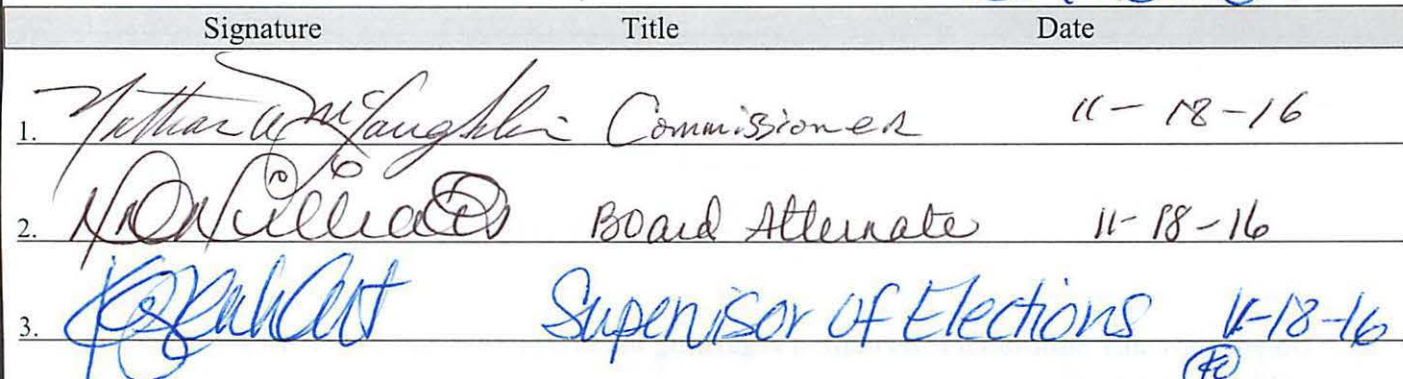 Signature Title Date
1. Nathan McLaughlin Commissioner 11-18-16
2. Board Alternate 11-18-16
3. Supervisor of Elections 11-18-16